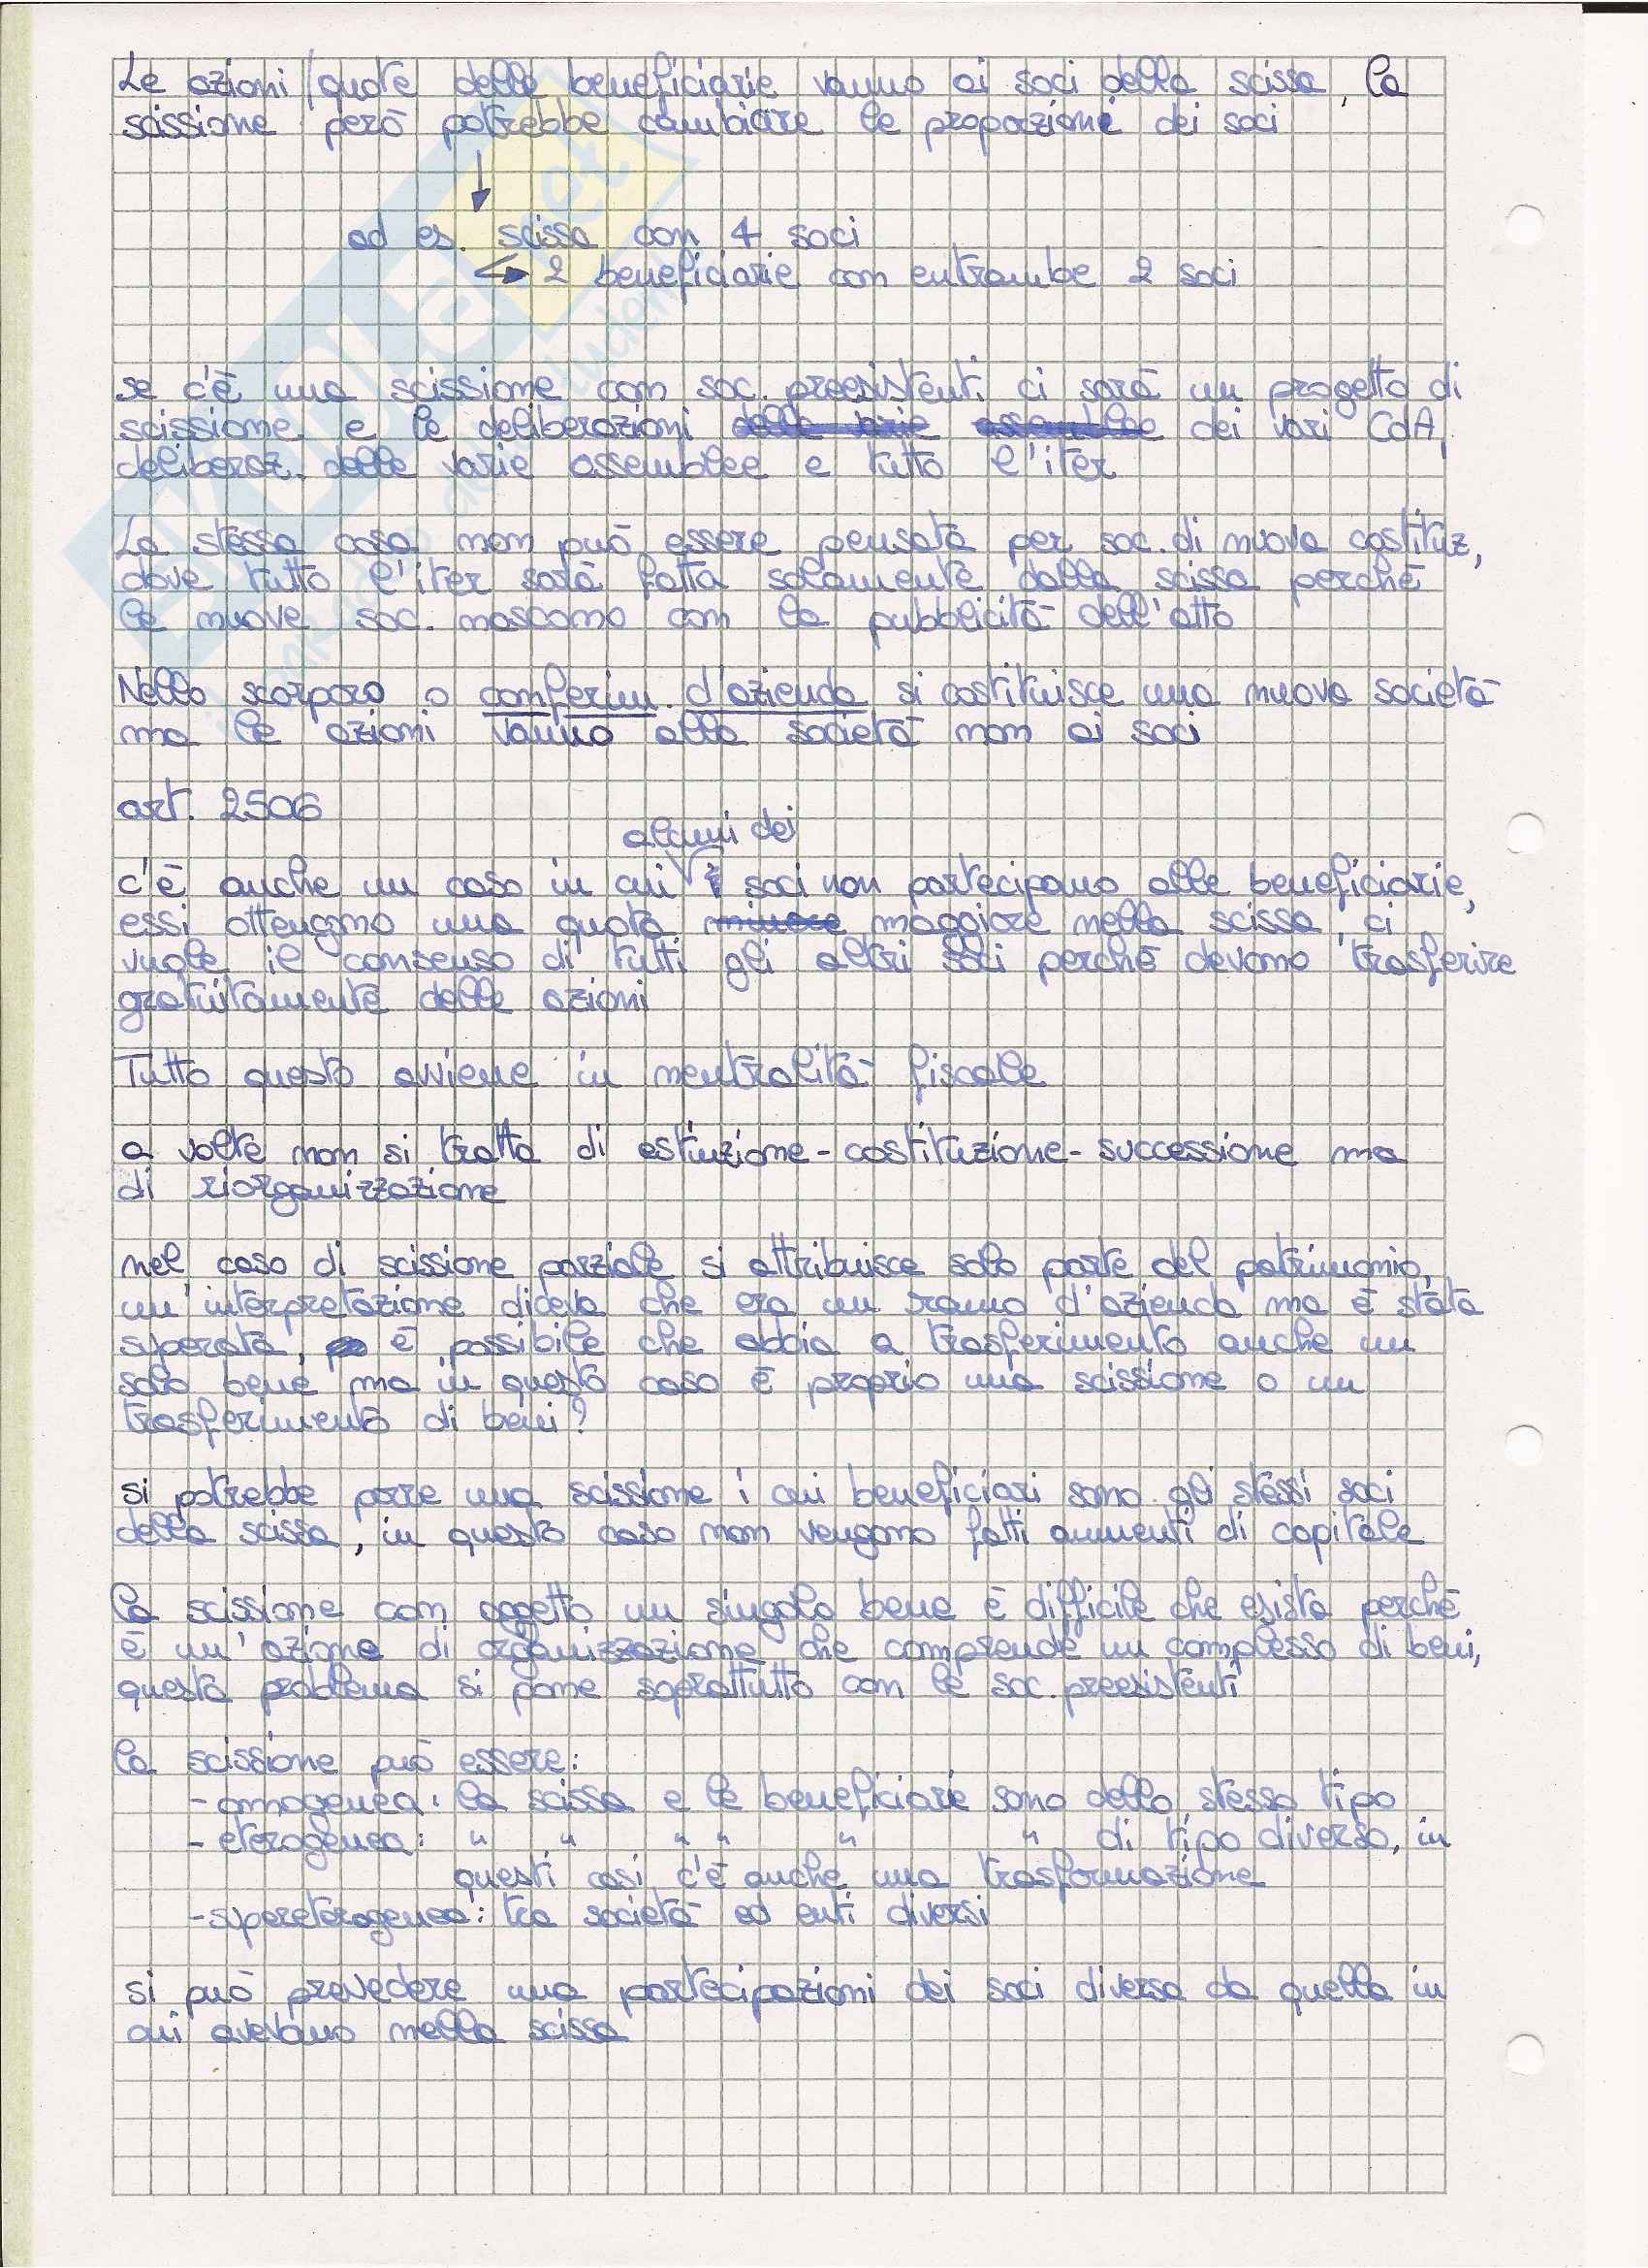 Le azioni/quote delle beneficiarie vanno ai soci della scissa, la
scissione però potrebbe cambiare le proporzioni dei soci
ad es. scissa con 4 soci
2 beneficiarie con entrambe 2 soci
se c'è una scissione con soc. preesistenti ci sarà un progetto di
scissione e le deliberazioni delle varie assemblee dei vari CdA,
deliberaz. delle varie assemblee e tutto l'iter
La stessa cosa non può essere pensata per soc. di nuova costituz,
dove tutto l'iter sarà fatta solamente dalla scissa perché
le nuove soc. nascono con la pubblicità dell'atto
Nello scorporo o conferim. d'azienda si costituisce una nuova società
ma le azioni vanno alla società non ai soci
art. 2506
alcuni dei
c'è anche un caso in cui i soci non partecipano alle beneficiarie,
essi ottengono una quota minore maggiore nella scissa, ci
vuole il consenso di tutti gli altri soci perché devono trasferire
gratuitamente delle azioni
Tutto questo avviene in neutralità fiscale
a volte non si tratta di estinzione-costituzione-successione ma
di riorganizzazione
nel caso di scissione parziale si attribuisce solo parte del patrimonio,
un'interpretazione diceva che era un ramo d'azienda ma è stata
superata, è possibile che abbia a trasferimento anche un
solo bene ma in questo caso è proprio una scissione o un
trasferimento di beni?
si potrebbe porre una scissione i cui beneficiari sono gli stessi soci
della scissa, in questo caso non vengono fatti aumenti di capitale
la scissione con oggetto un singolo bene è difficile che esista perché
è un'azione di organizzazione che comprende un complesso di beni,
questo problema si pone soprattutto con le soc. preesistenti
la scissione può essere:
- omogenea: la scissa e le beneficiarie sono dello stesso tipo
- eterogenea: " " " " " " di tipo diverso, in
questi casi c'è anche una trasformazione
- supereterogenea: tra società ed enti diversi
si può prevedere una partecipazioni dei soci diversa da quella in
cui avevano nella scissa